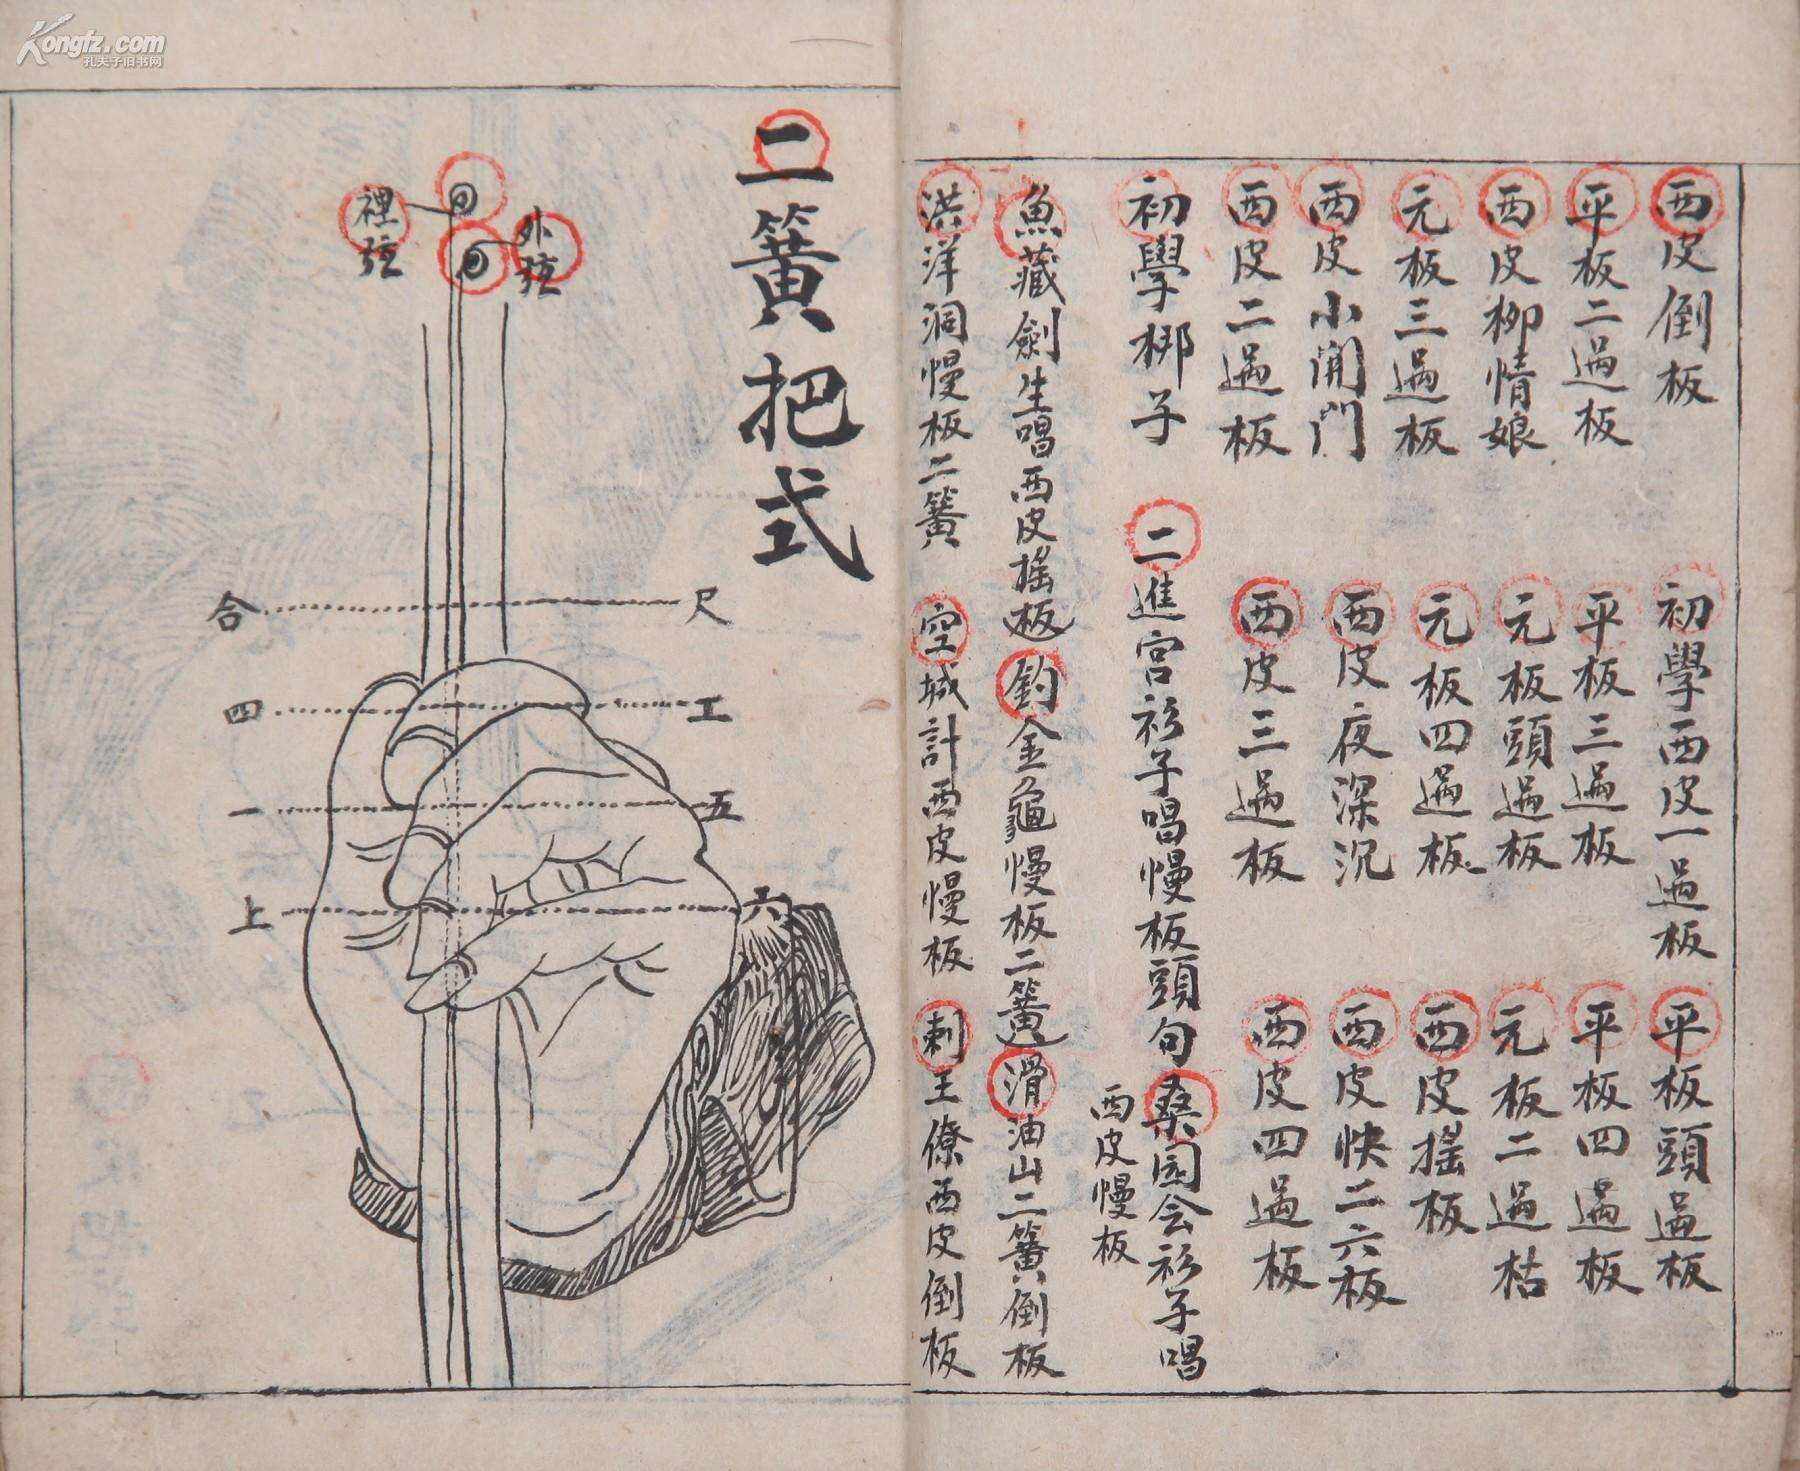 Kongfz.com
孔夫子旧书网
西皮倒板
初學西皮一過板
平板頭過板
平板二過板
平板三過板
平板四過板
西皮柳情娘
元板頭過板
元板二過枯
元板三過板
元板四過板
西皮搖板
西皮小開門
西皮夜深沉
西皮快二六板
西皮二過板
西皮三過板
西皮四過板
初學梆子
二進宮衫子唱慢板頭句
桑园会衫子唱
西皮慢板
魚藏劍生唱西皮搖板
釣金龜慢板二簧
滑油山二簧倒板
洪洋洞慢板二簧
空城計西皮慢板
刺王僚西皮倒板
二簧把式
外弦
裡弦
尺
合
工
四
五
一
六
上